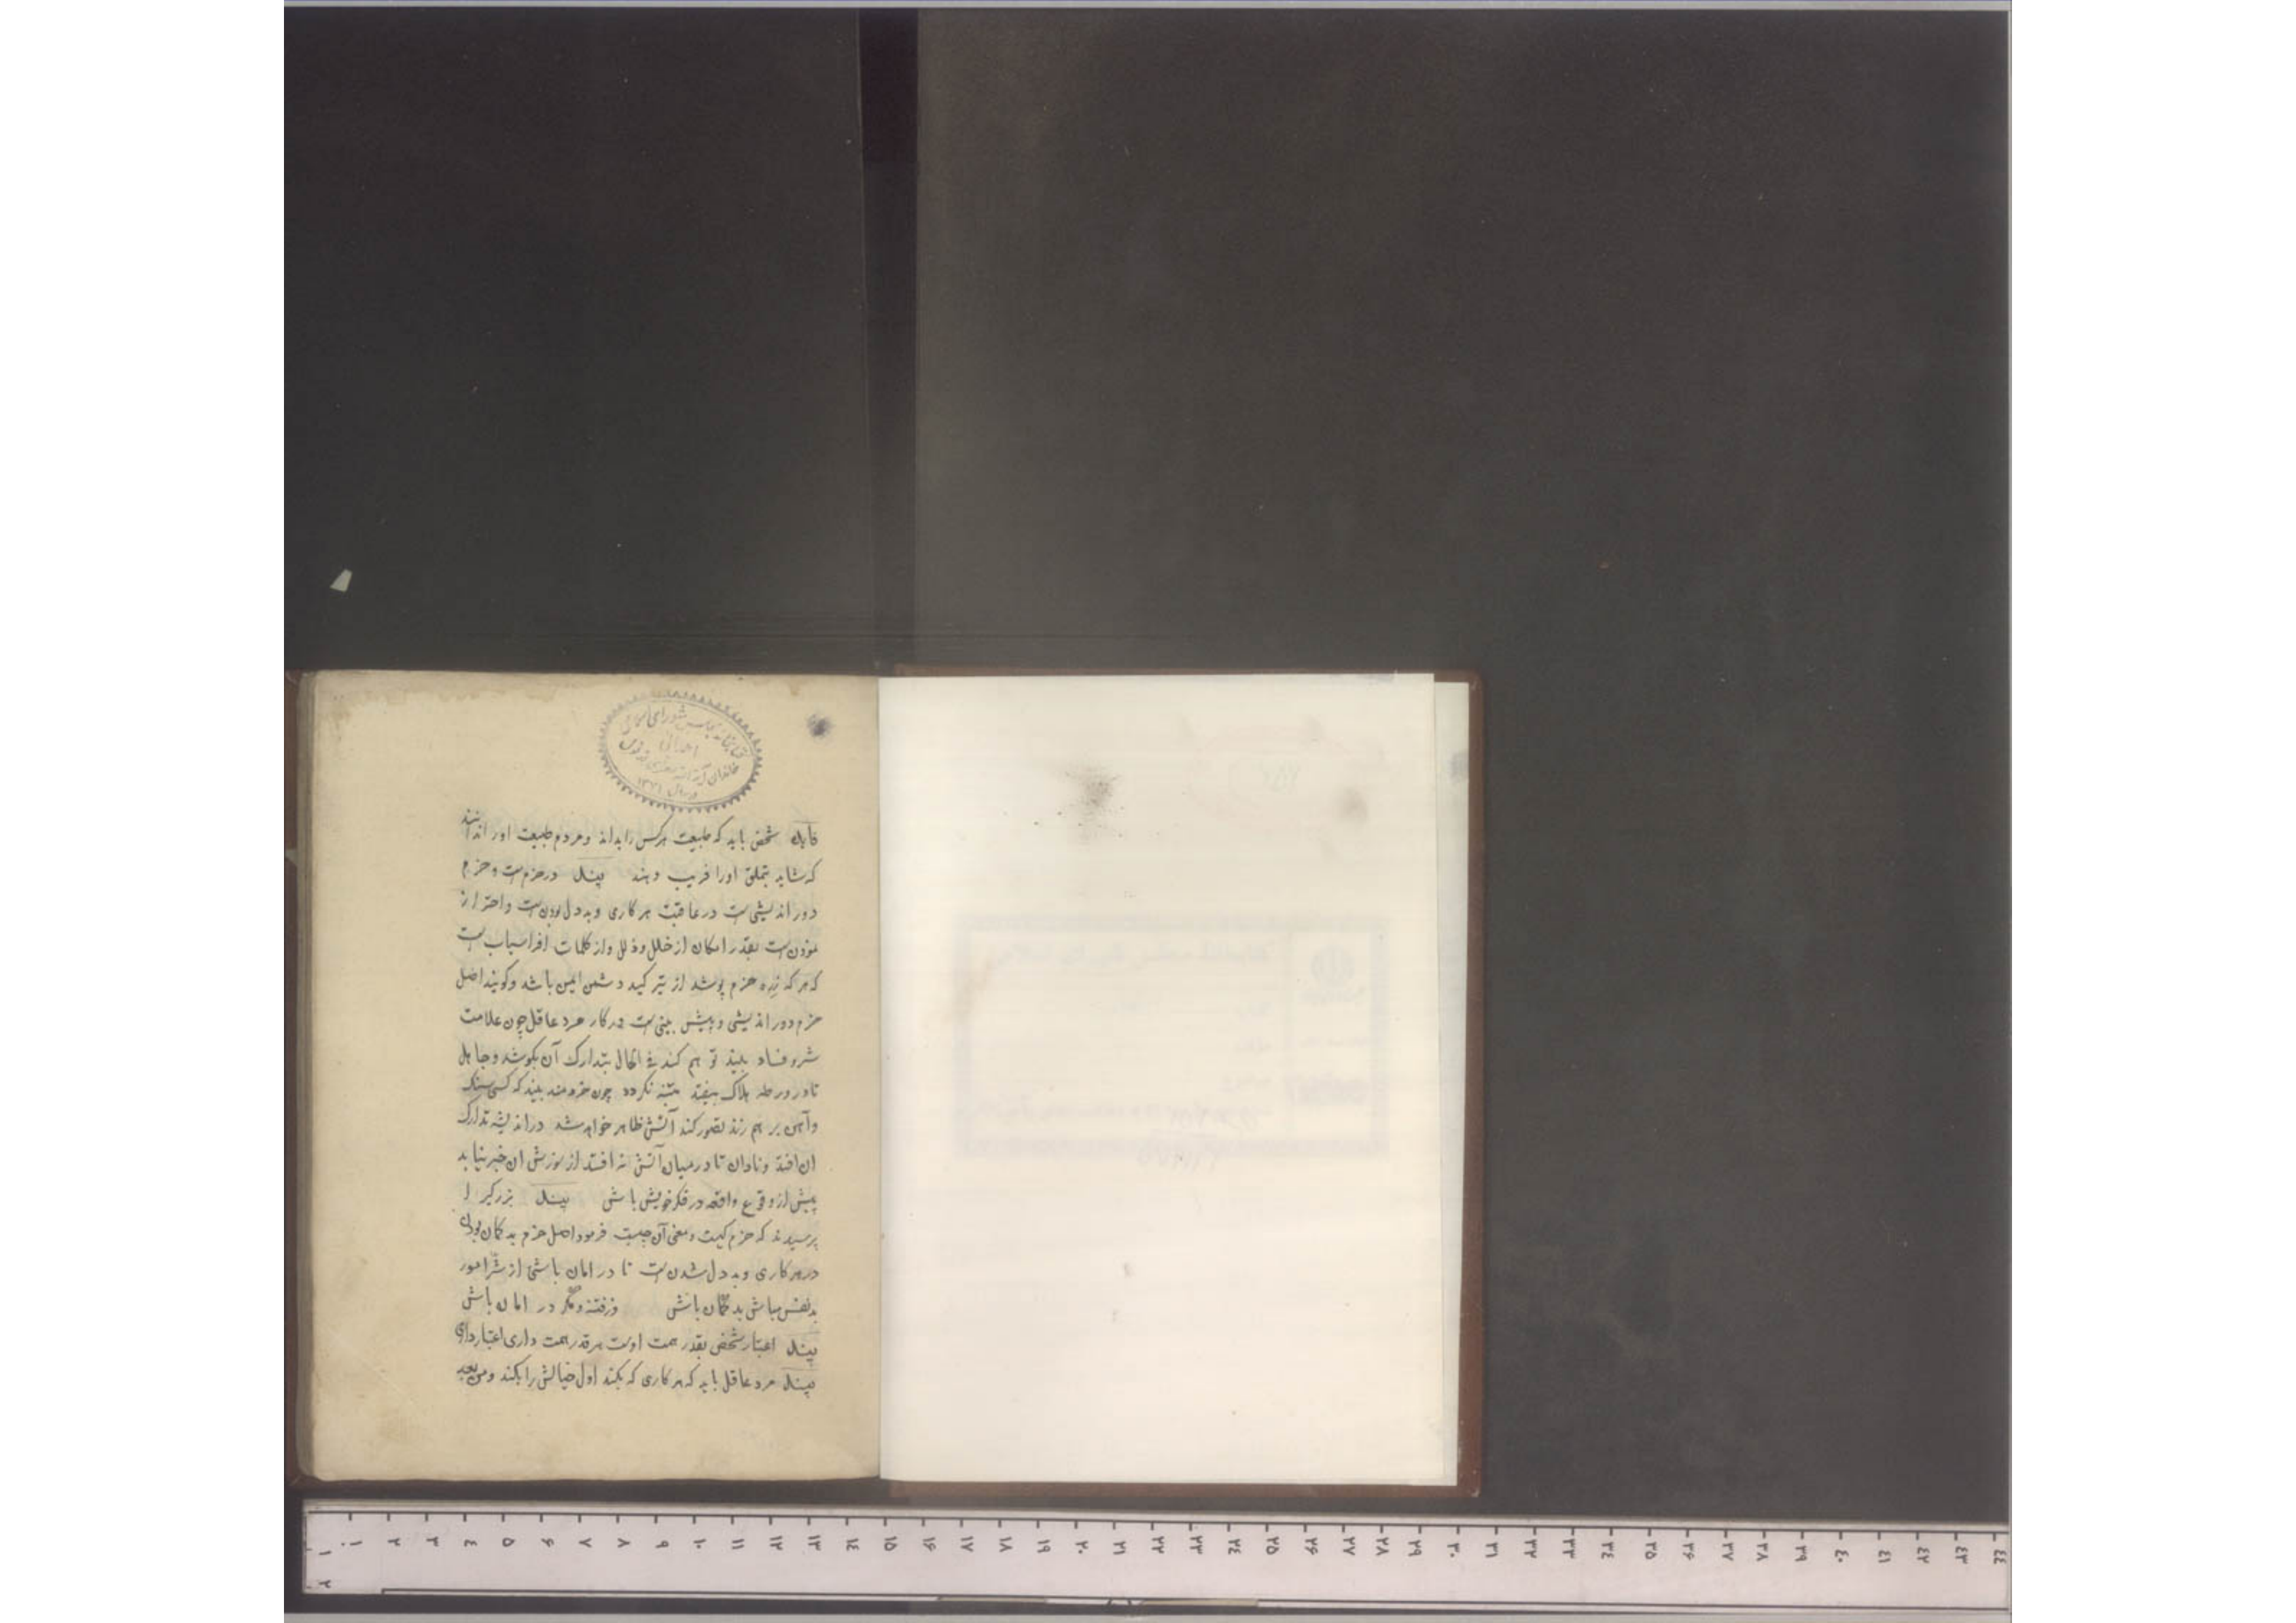 کتابخانه مجلس شورای اسلامی
اهدائی
خاندان آیة الله
در سال ۱۳۷۱
فایده شخص باید که طبیعت هرکس را بداند و مردم طبیعت او را ندانند
که شاید بتملق او را فریب دهند پند در حزم است و حزم
دور اندیشی است در عاقبت هر کاری و بد دل بودن است و احتراز
نمودن است بقدر امکان از خلل و ذلل و از کلمات افراسیاب است
که هر که زره حزم پوشد از تیر کید دشمن ایمن باشد و گویند اصل
حزم دور اندیشی و پیش بینی است در کار مرد عاقل چون علامت
شر و فساد بیند تو هم کند فی الحال بتدارک آن بکوشد و جاهل
تا در ورطه هلاک نیفتد متنبه نکردد چون خردمند بیند که کسی سنک
و آهن بر هم زند تصور کند آتش ظاهر خواهد شد در اندیشه تدارک
ان افتد و نادان تا در میان آتش نه افتد از سوزش ان خبر نیابد
پیش از وقوع واقعه در فکر خویش باش پند بزرکی را
پرسیدند که حزم کیست و معنی آن چیست فرمود اصل حزم بد کمان بودن
در هر کاری و بد دل شدن است تا در امان باشی از شر امور
بد نفس مباش بد کمان باش وز فتنه و مکر در امان باش
پند اعتبار شخص بقدر همت اوست هر قدر همت داری اعتبار داری
پند مرد عاقل باید که هر کاری که بکند اول خیالش را بکند و من بعد
۱ ۲ ۳ ٤ ۵ ۶ ۷ ۸ ۹ ۱۰ ۱۱ ۱۲ ۱۳ ۱٤ ۱۵ ۱۶ ۱۷ ۱۸ ۱۹ ۲۰ ۲۱ ۲۲ ۲۳ ۲٤ ۲۵ ۲۶ ۲۷ ۲۸ ۲۹ ۳۰ ۳۱ ۳۲ ۳۳ ۳٤ ۳۵ ۳۶ ۳۷ ۳۸ ۳۹ ٤۰ ٤۱ ٤۲ ٤۳ ٤٤